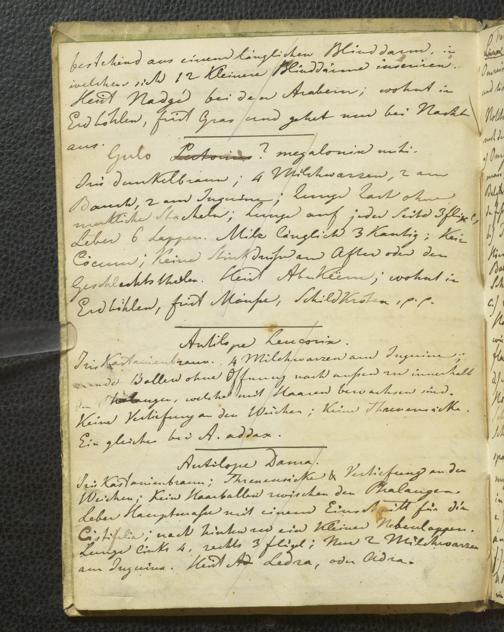 bestehend aus einem länglichen Blinddarm, in
welchen sich 12 kleinere Blinddärme inseriren.
Heist Nadgé bei den Arabern; wohnt in
Erdhöhlen, frist Gras und gehet nur bei Nacht
aus.
Gulo ? megalonix mihi.
Iris dunkelbraun; 4 Milchwarzen, 2 am
Bauch, 2 am Inguina; Zunge zart ohne
merkliche Stacheln; Lunge auf jeder Seite 3 flüg.
Leber 6 Lappen. Milz länglich 3 kantig; Kein
Cöcum; Keine Stinkdrüse am After oder den
Geschlechtstheilen. Heist Abu Keïm; wohnt in
Erdhöhlen, frist Mäuse, Schildkröten, p. p.
Antilope Leucorix.
Iris Kastanienbraun. 4 Milchwarzen am Inguina;
Ballen ohne Öffnung nach außen zu innerhalb
der Phalangen, welche mit Haaren verwachsen sind.
Keine Vertiefung an den Weichen; Keine Thränensäcke.
Ein gleiches bei A. addax.
Antilope Dama.
Iris Kastanienbraun; Thränensäcke & Vertiefung an den
Weichen; Kein Haarballen zwischen den Phalangen.
Leber Hauptmasse mit einem Einschnitt für die
nach hinten zu ein kleiner Nebenlappen.
Lunge links 4, rechts 3 flügl; Nur 2 Milchwarzen
am Inguina. Heist Ledra, oder Adra.